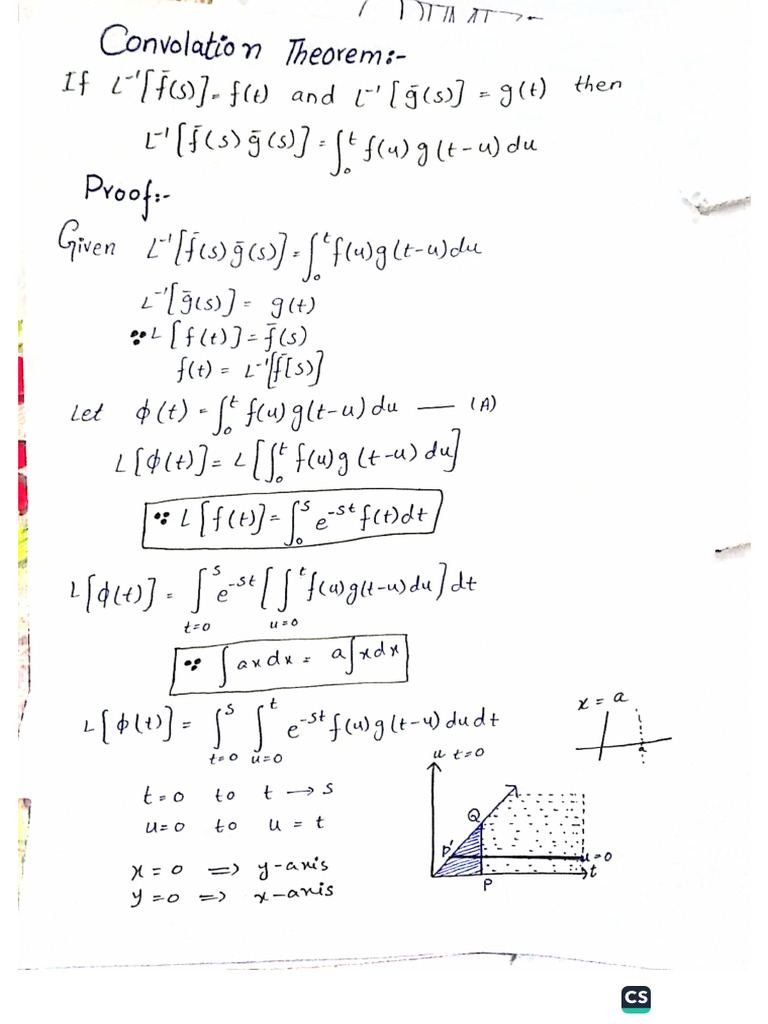 Convolation Theorem:-
If L⁻¹[f̄(s)] = f(t) and L⁻¹[ḡ(s)] = g(t) then
L⁻¹[f̄(s) ḡ(s)] = ∫₀ᵗ f(u) g(t-u) du
Proof:-
Given L⁻¹[f̄(s) ḡ(s)] = ∫₀ᵗ f(u) g(t-u) du
L⁻¹[ḡ(s)] = g(t)
∵ L[f(t)] = f̄(s)
f(t) = L⁻¹[f̄[s)]
Let ϕ(t) = ∫₀ᵗ f(u) g(t-u) du — (A)
L[ϕ(t)] = L[∫₀ᵗ f(u) g(t-u) du]
∵ L[f(t)] = ∫₀ˢ e⁻ˢᵗ f(t) dt
L[ϕ(t)] = ∫ₜ₌₀ˢ e⁻ˢᵗ [∫ᵤ₌₀ᵗ f(u) g(t-u) du] dt
∵ ∫ax dx = a∫x dx
L[ϕ(t)] = ∫ₜ₌₀ˢ ∫ᵤ₌₀ᵗ e⁻ˢᵗ f(u) g(t-u) du dt
x = a
a
t=0 to t → s
u=0 to u = t
x = 0 => y-axis
y = 0 => x-axis
u t=0
Q
P'
u=0
t
P
CS